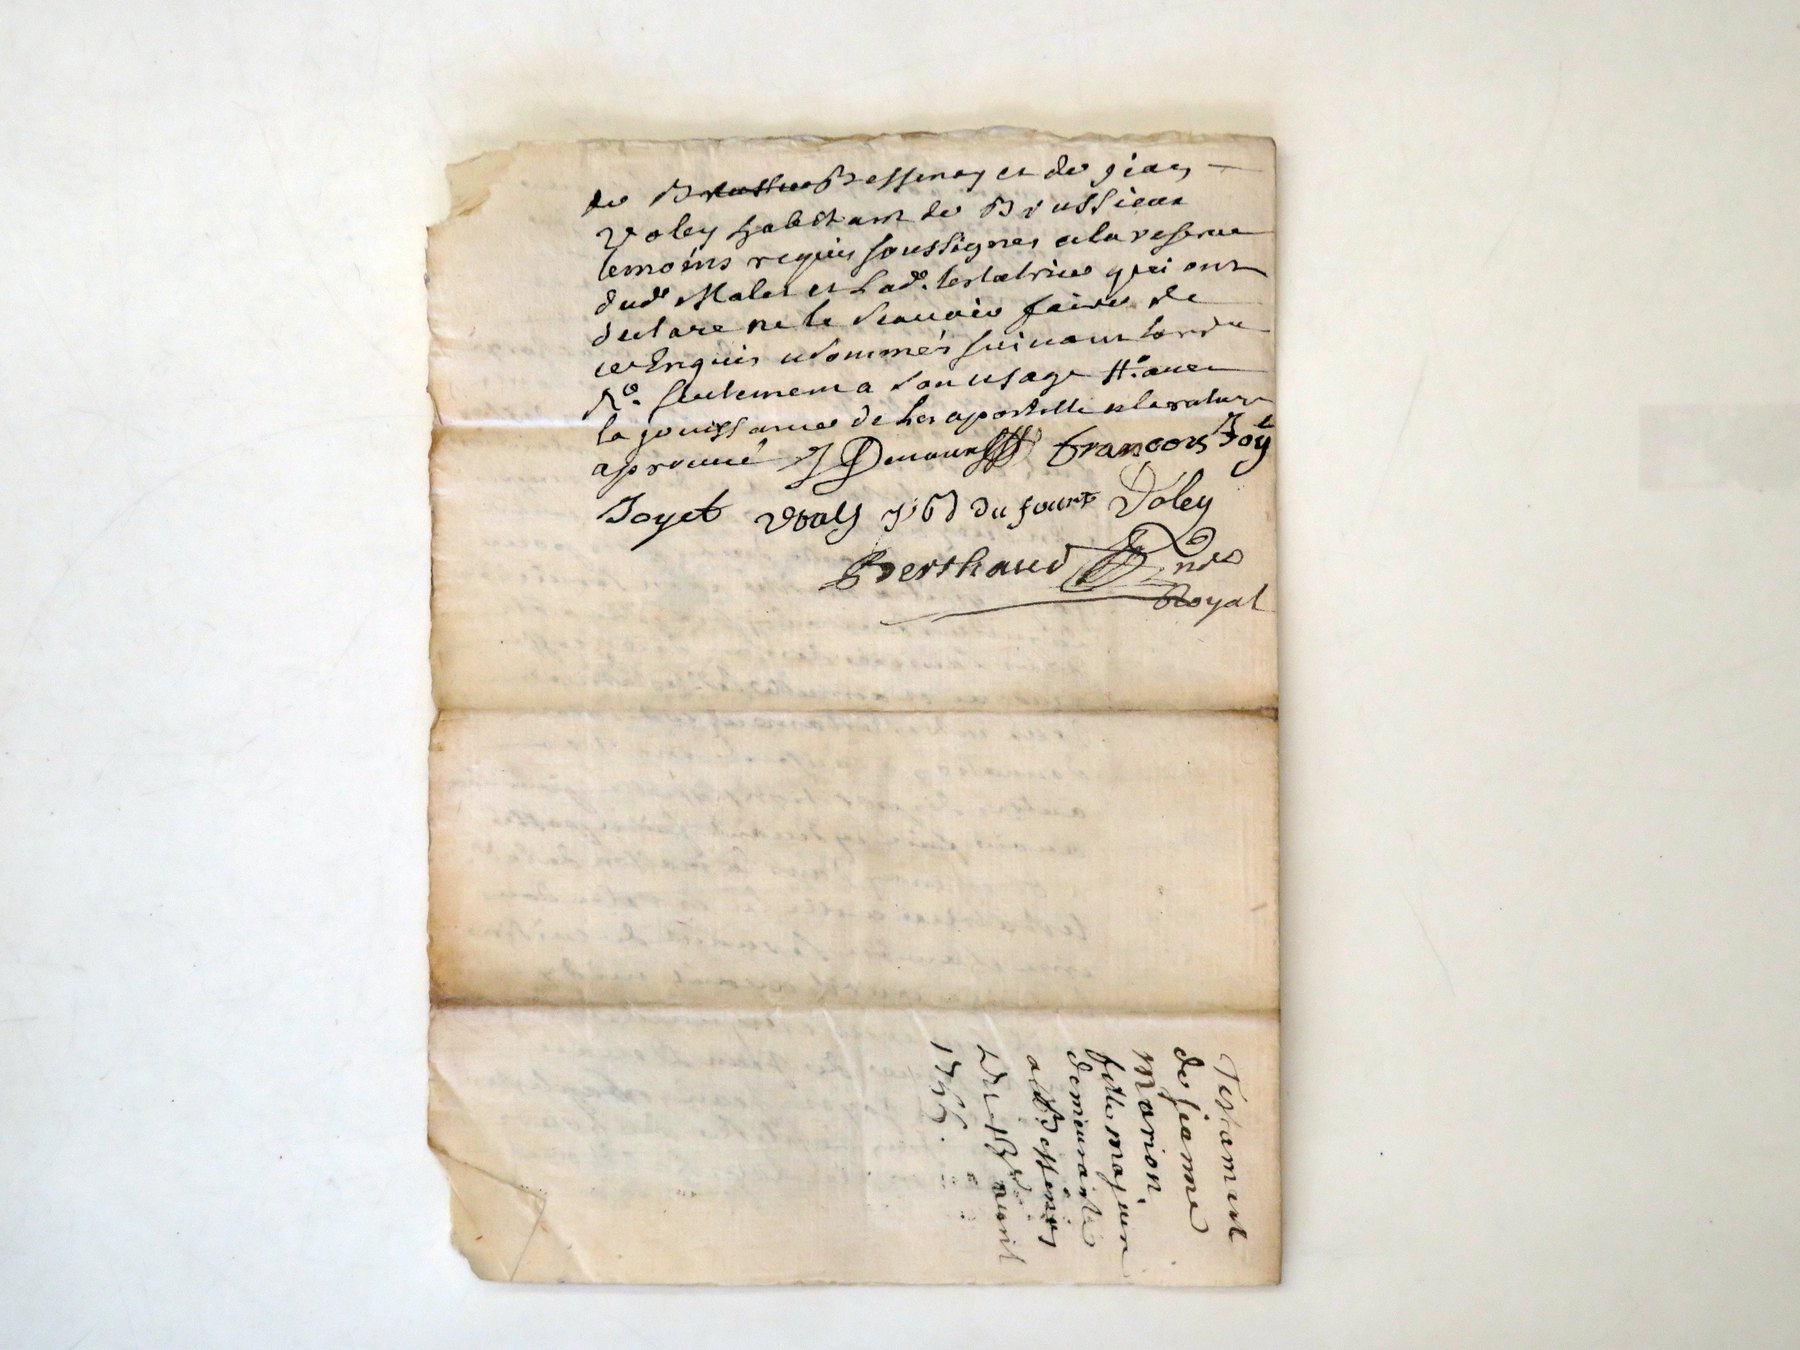 de Brussieu Bessenay et de jean
Voley habitant de Brussieux
temoins requis soussignes a la reserve
dud. Malet et Lad. testatrice qui ont
declare ne le scauoir faire de
ce Enquis et sommés suiuant lordce
No. seulement a son usage #.auec
la jouissance de Les apostille et la rature
aprouué J Demours francois Joyet
Joyet Voley du fourt Voley
Berthaud Nre
Royal
Testament
de jeanne
Marion
fille majeure
demeurante
a Bessenay
Du avril